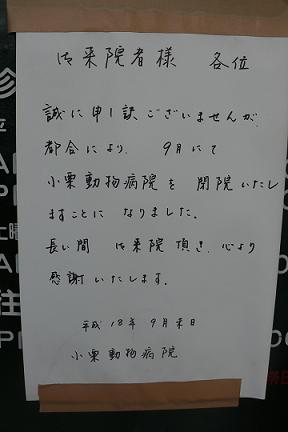 御来院者様 各位
誠に申し訳ございませんが、
都合により、9月にて
小栗動物病院を閉院いたし
ますことになりました。
長い間 御来院頂き、心より
感謝いたします。
平成18年9月末日
小栗動物病院